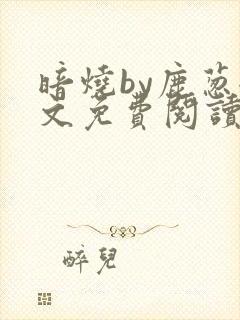 暗燒by鹿葱
文免費閱讀
醉兒